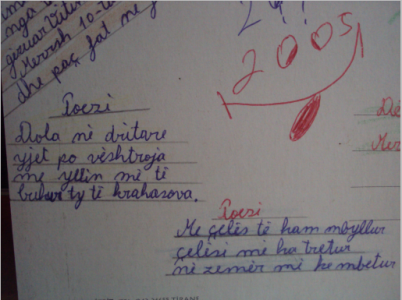 nga
gëzuar
10-të
dhe paç fat në
2005
Poezi
Dola në dritare
yjet po vështroja
me yllin më të
bukur ty të krahasova.
Poezi
Me çelës të kam mbyllur
çelësi më ka tretur
në zemër më ke mbetur